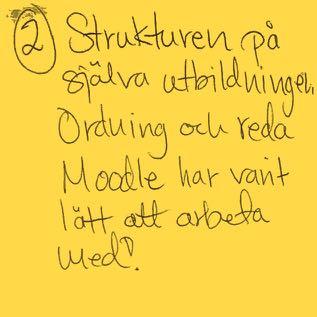 ② Strukturen på
själva utbildningen.
Ordning och reda
Moodle har varit
lätt att arbeta
med!